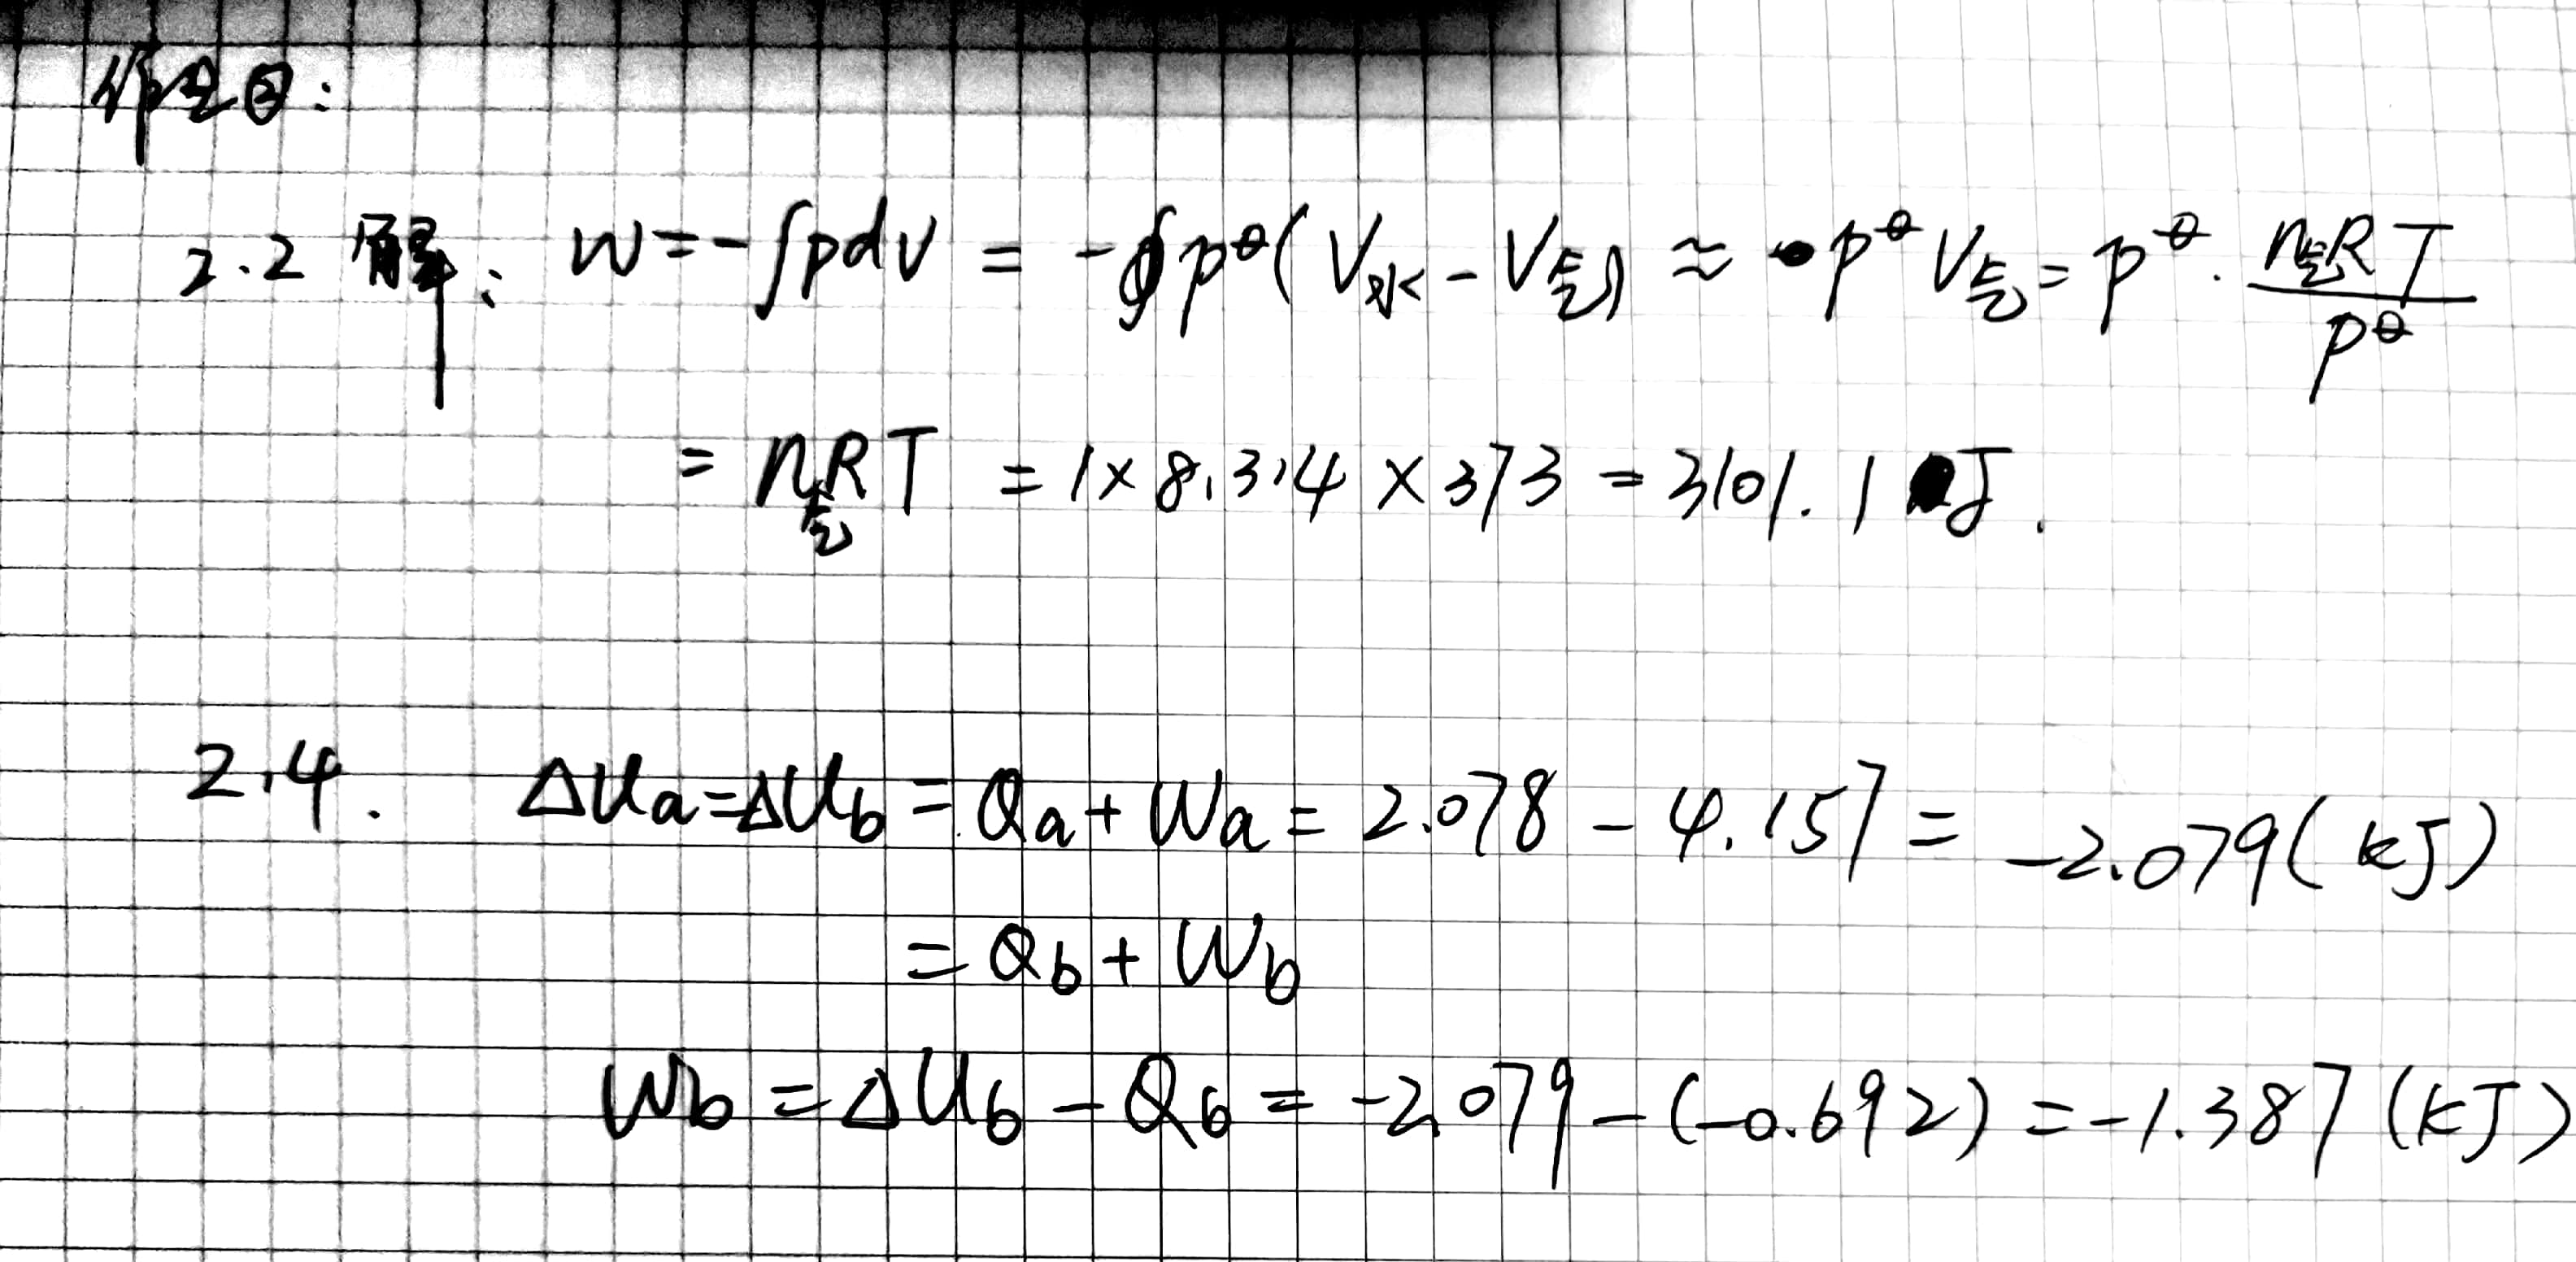 作业②:
2.2 解: W=-∫pdV = -p^θ(V水-V气) ≈ p^θV气 = p^θ·n气RT/p^θ
= n气RT = 1×8.314×373 = 3101.1 J.
2.4. ΔUa=ΔUb=Qa+Wa=2.078-4.157=-2.079(kJ)
=Qb+Wb
Wb=ΔUb-Qb=-2.079-(-0.692)=-1.387(kJ)